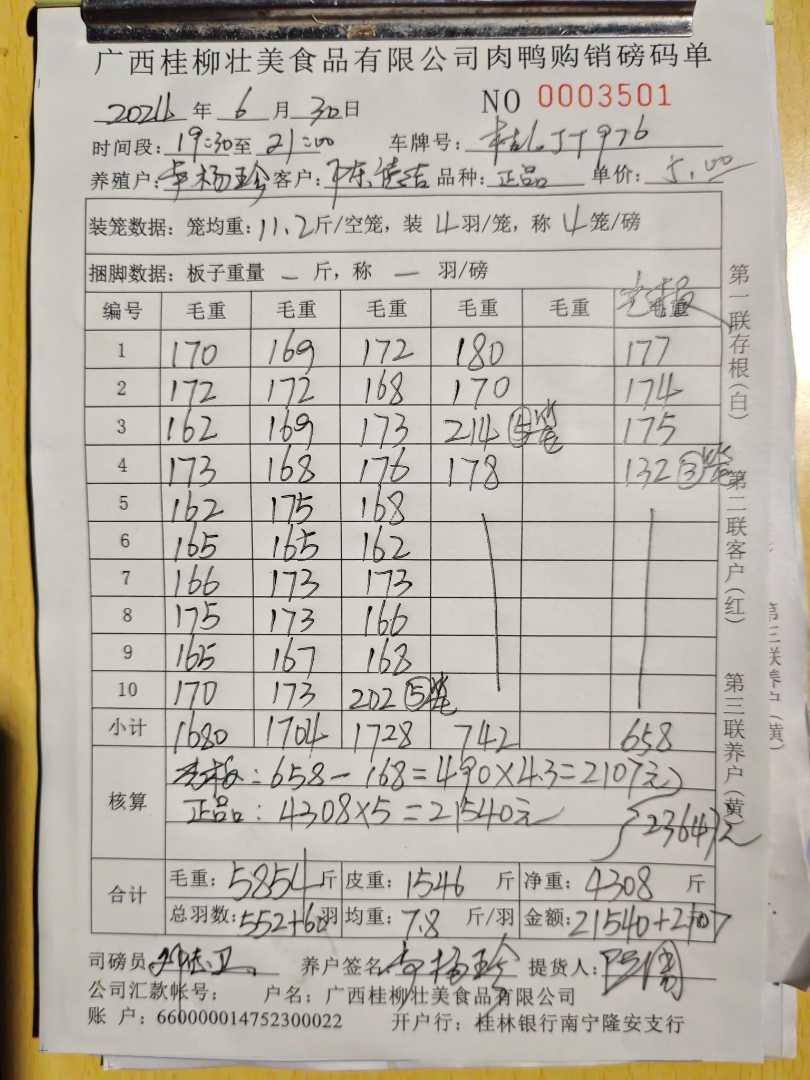 广西桂柳壮美食品有限公司肉鸭购销磅码单
2024 年 6 月 30 日 NO 0003501
时间段: 19:30 至 21:00 车牌号: 桂 J T976
养殖户: 杨珍 客户: 陈 品种: 正品 单价: 5.00
装笼数据: 笼均重: 11.2 斤/空笼, 装 4 羽/笼, 称 4 笼/磅
捆脚数据: 板子重量 — 斤, 称 — 羽/磅
编号 毛重 毛重 毛重 毛重 毛重 毛重
1 170 169 172 180 177
2 172 172 168 170 174
3 162 169 173 214 ⑤笼 175
4 173 168 176 178 132 ③笼
5 162 175 168
6 165 165 162
7 166 173 173
8 175 173 166
9 165 167 168
10 170 173 202 ⑤笼
小计 1680 1704 1728 742 658
核算
: 658 - 168 = 490 × 4.3 = 2107元
正品: 4308 × 5 = 21540元
23647元
合计
毛重: 5854 斤 皮重: 1546 斤 净重: 4308 斤
总羽数: 552+60 羽 均重: 7.8 斤/羽 金额: 21540+2107
司磅员: 养户签名: 杨珍 提货人:
公司汇款帐号: 户名: 广西桂柳壮美食品有限公司
账 户: 660000014752300022 开户行: 桂林银行南宁隆安支行
第一联存根(白)
第二联客户(红)
第三联养户(黄)
第三联养户(黄)